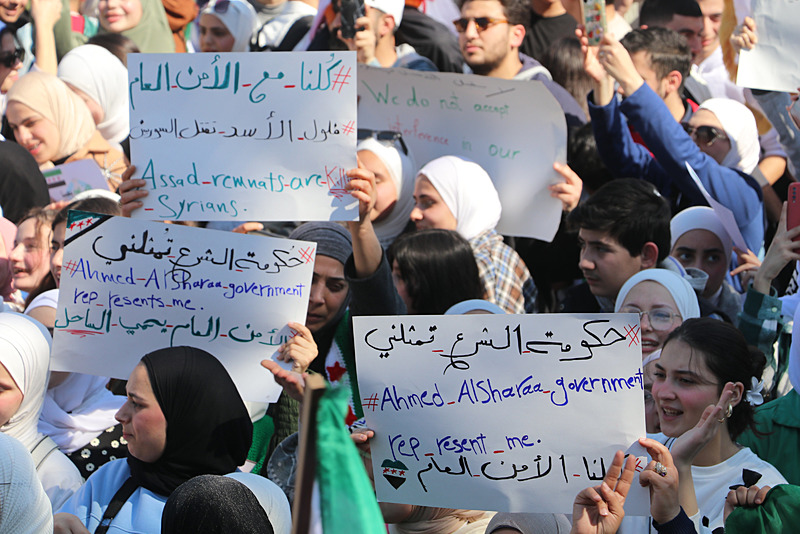 #كلنا_مع_الأمن_العام
#فلول_الأسد_تقتل_السوريين
Assad_remnats_are Kill
Syrians.
We do not accept
in our
#حكومة_الشرع_تمثلني
#Ahmed_AlSharaa_government
rep_resents_me.
الأمن_العام_يحمي_الساحل
#حكومة_الشرع_تمثلني
#Ahmed_AlSharaa_government
rep_resent_me.
الأمن_العام